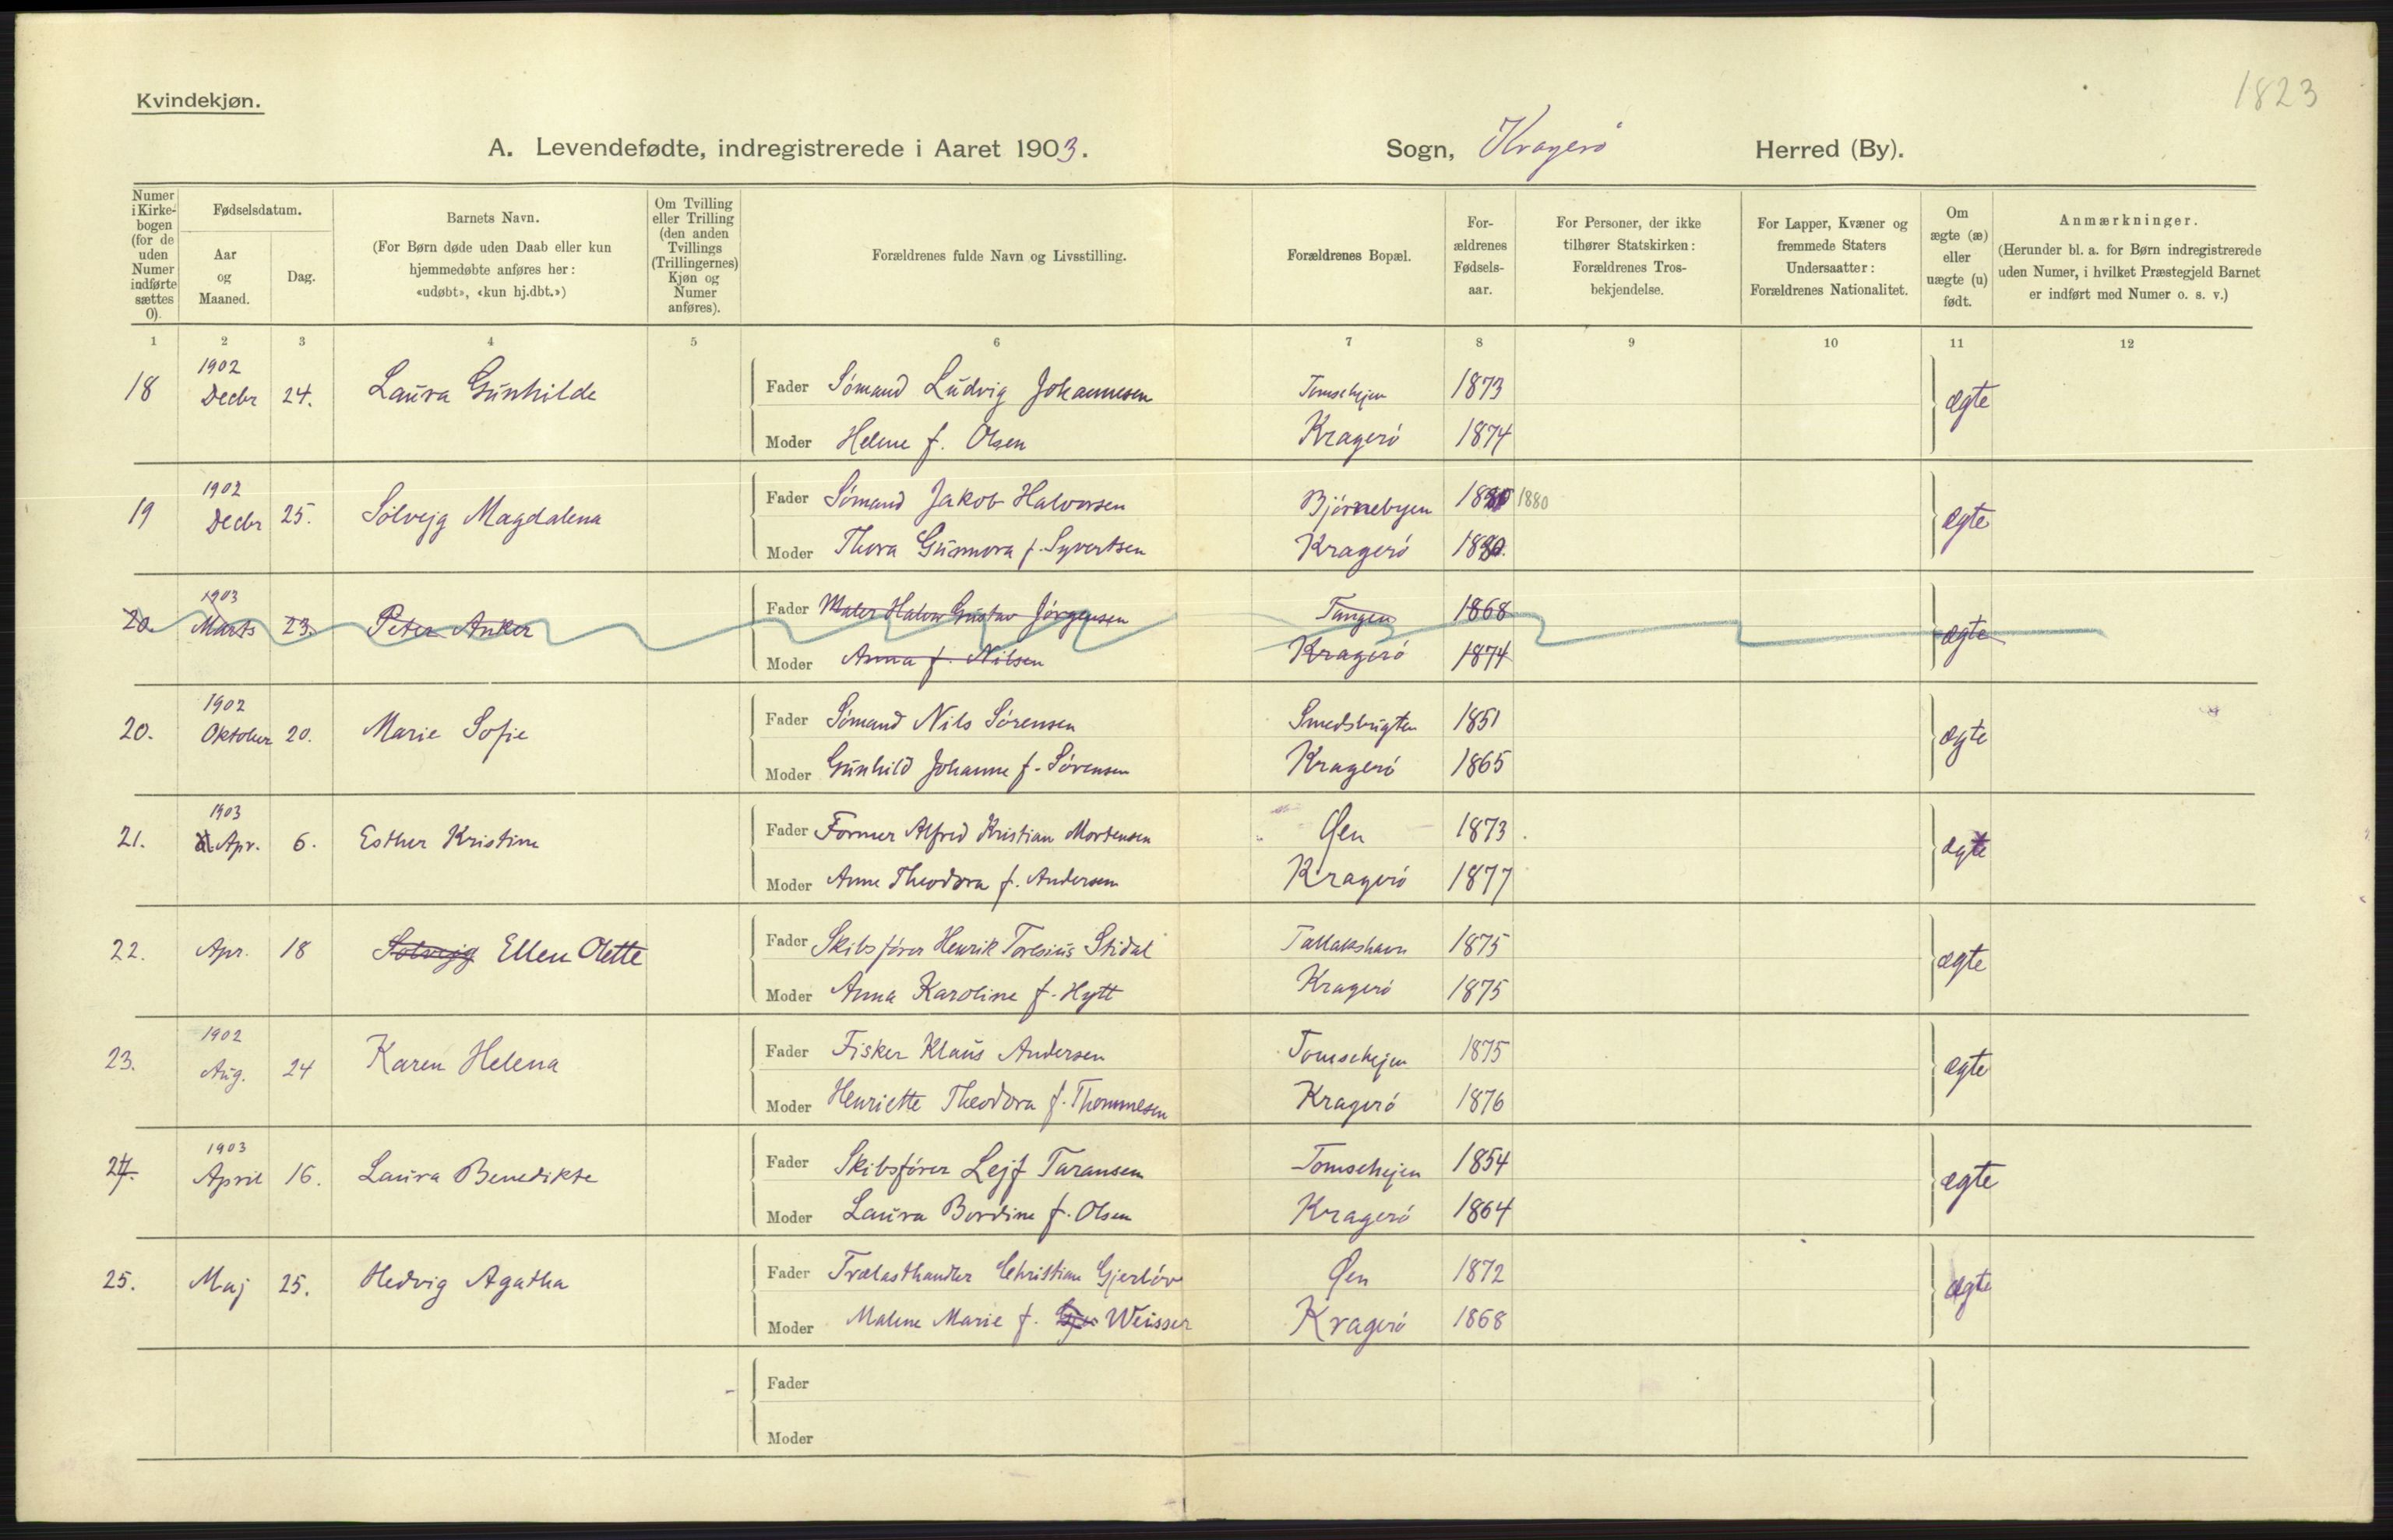 1823
Kvindekjøn.
A. Levendefødte, indregistrerede i Aaret 1903. Sogn, Kragerø Herred (By).
Numer i Kirkebogen (for de uden Numer indførte sættes 0).
Fødselsdatum.
Aar og Maaned.
Dag.
Barnets Navn.
(For Børn døde uden Daab eller kun hjemmedøbte anføres her: «udøbt», «kun hj.dbt.»)
Om Tvilling eller Trilling (den anden Tvillings (Trillingernes) Kjøn og Numer anføres).
Forældrenes fulde Navn og Livsstilling.
Forældrenes Bopæl.
For-ældrenes Fødsels-aar.
For Personer, der ikke tilhører Statskirken: Forældrenes Tros-bekjendelse.
For Lapper, Kvæner og fremmede Staters Undersaatter: Forældrenes Nationalitet.
Om ægte (æ) eller uægte (u) født.
Anmærkninger.
(Herunder bl. a. for Børn indregistrerede uden Numer, i hvilket Præstegjeld Barnet er indført med Numer o. s. v.)
1 2 3 4 5 6 7 8 9 10 11 12
1902
18 Decbr 24. Laura Gunhilde Fader Sømand Ludvig Johannesen Tomsehejen 1873 ægte
Moder Helene f. Olsen Kragerø 1874
1902
19 Decbr 25. Solvejg Magdalena Fader Sømand Jakob Halvorsen Bjørnebyen 1880 ægte
Moder Thora Gunnora f. Syvertsen Kragerø 1880.
1903
20. Marts 23. Peter Anker Fader Maler Halvor Gustav Jörgensen Tangen 1868 ægte
Moder Anna f. Nilsen Kragerø 1874
1902
20. Oktober 20. Marie Sofie Fader Sømand Nils Sörensen Smedsbugten 1851 ægte
Moder Gunhild Johanne f. Sörensen Kragerø 1865
1903
21. Apr. 6. Esther Kristine Fader Former Alfred Kristian Mortensen Øen 1873 ægte
Moder Anne Theodora f. Andersen Kragerø 1877
22. Apr. 18 Solvejg Ellen Olette Fader Skibsfører Henrik Toresius Stidal Tallakshavn 1875 ægte
Moder Anna Karoline f. Hytt Kragerø 1875
1902
23. Aug. 24 Karen Helena Fader Fisker Klaus Andersen Tomsehejen 1875 ægte
Moder Henriette Theodora f. Thommesen Kragerø 1876
1903
24. April 16. Laura Benedikte Fader Skibsfører Lejf Taransen Tomsehejen 1854 ægte
Moder Laura Bordine f. Olsen Kragerø 1864
25. Maj 25. Hedvig Agatha Fader Trælasthandler Christian Gjerløv Øen 1872 ægte
Moder Malene Marie f. Weisser Kragerø 1868
Fader
Moder